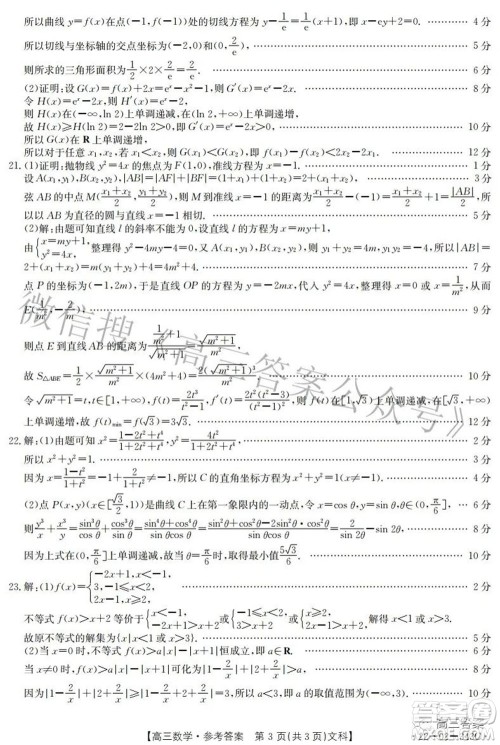 所以曲线 y=f(x)在点(-1,f(-1))处的切线方程为 y-1/e=1/e(x+1),即 x-ey+2=0. 4 分
所以切线与坐标轴的交点坐标为(-2,0)和(0,2/e), 5 分
则所求的三角形面积为1/2×2×2/e=2/e. 6 分
(2)证明:设 G(x)=f(x)+2x=eˣ-x²-1,则 G′(x)=eˣ-2x. 8 分
令 H(x)=eˣ-2x,则 H′(x)=eˣ-2,
则 H(x)在(-∞,ln 2)上单调递减,在(ln 2,+∞)上单调递增,
故 H(x)≥H(ln 2)=2-2ln 2>0,即 G′(x)=eˣ-2x>0. 10 分
所以 G(x)在 R 上单调递增,
所以对于任意 x₁,x₂,若 x₁<x₂,则 G(x₁)<G(x₂),即 f(x₁)-f(x₂)<2x₂-2x₁. 12 分
21.(1)证明:抛物线 y²=4x 的焦点为 F(1,0),准线方程为 x=-1. 1 分
设 A(x₁,y₁),B(x₂,y₂),|AB|=|AF|+|BF|=(1+x₁)+(1+x₂)=2+(x₁+x₂). 3 分
弦 AB 的中点 M((x₁+x₂)/2,(y₁+y₂)/2),则 M 到准线 x=-1 的距离为(x₁+x₂)/2-(-1)=(x₁+x₂)/2+1=|AB|/2,所
以以 AB 为直径的圆与直线 x=-1 相切. 5 分
(2)解:由题可知直线 l 的斜率不能为 0,设直线 l 的方程为 x=my+1,
由{x=my+1, y²=4x,整理得 y²-4my-4=0,又 A(x₁,y₁),B(x₂,y₂),则 y₁+y₂=4m,y₁y₂=-4,所以|AB|=
2+(x₁+x₂)=m(y₁+y₂)+4=4m²+4. 7 分
点 P 的坐标为(-1,2m),于是直线 OP 的方程为 y=-2mx,代入 y²=4x 整理得 x=0 或 x=1/m²,从而
E(1/m²,-2/m). 9 分
则点 E 到直线 AB 的距离为
故 S△ABE=1/2× ×(4m²+4)= . 10 分
令√(m²+1)=t,t∈[1,+∞),f(t)=2t³/(t²-1),f′(t)=2t²(t²-3)/(t²-1)²,则 f(t)在[1,√3)上单调递减,在[√3,+∞)
上单调递增,故 f(t)min=f(√3)=3√3. 12 分
22.解:(1)由题意可知 x²=(1-2t²+t⁴)/(1+2t²+t⁴),y²=4t²/(1+2t²+t⁴), 2 分
所以 x²+y²=1. 3 分
因为 x=(1-t²)/(1+t²)=-1+2/(1+t²)≠-1,所以 C 的直角坐标方程为 x²+y²=1(x≠-1). 4 分
(2)点 P(x,y)(x∈[√3/2,1))是曲线 C 上在第一象限内的一动点,令 x=cos θ,y=sin θ,θ∈(0,π/6], 6 分
则y³/x+x³/y=sin³θ/cos θ+cos³θ/sin θ=(sin⁴θ+cos⁴θ)/(sin θcos θ)=(sin²θ+cos²θ-2sin²θ·cos²θ)/(sin θcos θ)=2/sin 2θ-sin 2θ. 8 分
因为上式在(0,π/6]上单调递减,故当 θ=π/6时,取得最小值5√3/6. 10 分
23.解:(1)f(x)={-2x+1,x<-1, 3,-1≤x<2, 2x-1,x≥2, 2 分
不等式 f(x)>x+2 等价于{x<-1, -2x+1>x+2或{-1≤x<2, 3>x+2或{x≥2, 2x-1>x+2,解得 x<1 或 x>3. 4 分
故原不等式的解集为{x|x<1 或 x>3}. 5 分
(2)当 x=0 时,不等式 f(x)>a|x|-|x+1|恒成立,即 a∈R. 6 分
当 x≠0 时,f(x)>a|x|-|x+1|可化为|1-2/x|+|2+2/x|>a, 8 分
因为|1-2/x|+|2+2/x|≥|1-2/x+2+2/x|=3,所以 a<3,即 a 的取值范围为(-∞,3). 10 分
【高三数学·参考答案 第 3 页(共 3 页)文科】
微信搜《高三答案公众号》